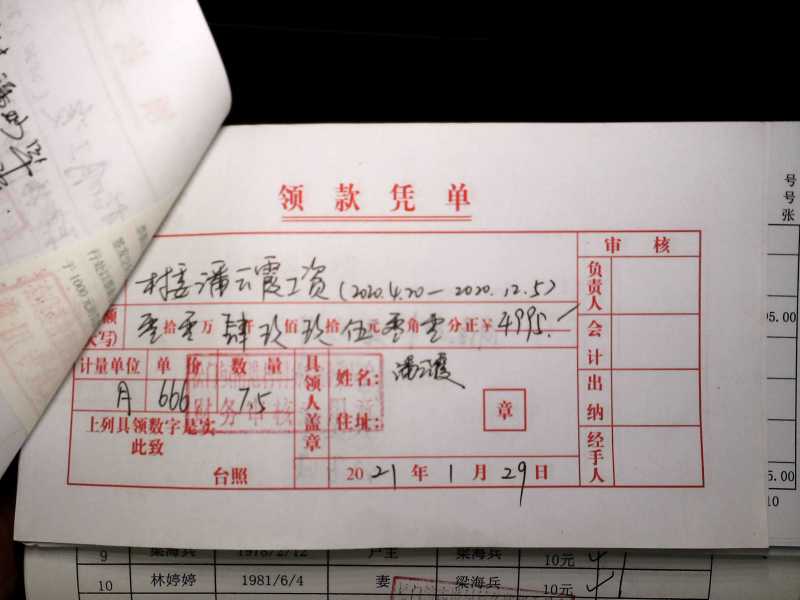 领款凭单
村委潘云霞工资(2020.4.20—2020.12.5)
额
大写) 零拾零万肆玖佰玖拾伍元零角零分正¥4995.
计量单位 单价 数量
月 666 7.5
上列具领数字是实
此致
台照
具领人盖章
姓名: 潘云霞
住址:
章
2021年1月29日
审核
负责人
会计
出纳
经手人
财务审核
号
号
张
95.00
5.00
10
于1000元
9 梁海兵 1976/2/12 户主 梁海兵 10元
10 林婷婷 1981/6/4 妻 梁海兵 10元